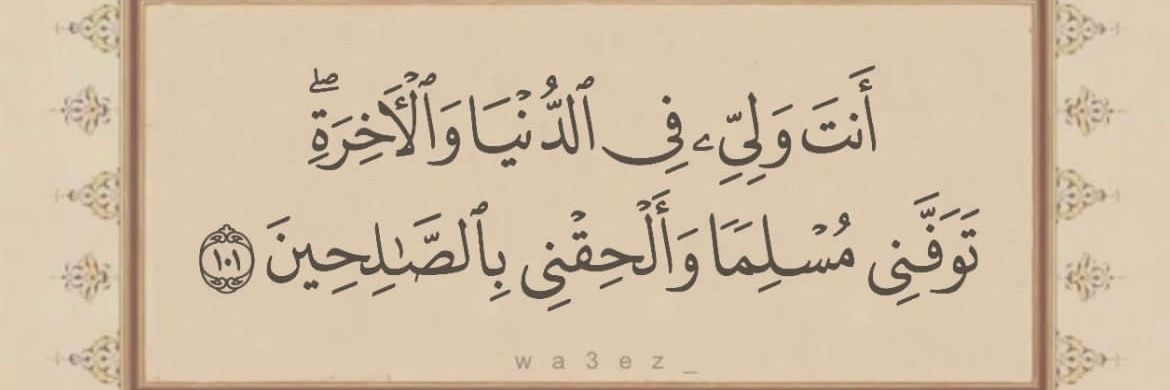 أَنتَ وَلِيِّۦ فِى ٱلدُّنْيَا وَٱلْأَخِرَةِ ۖ
تَوَفَّنِى مُسْلِمًا وَأَلْحِقْنِى بِٱلصَّـٰلِحِينَ ١٠١
wa3ez_